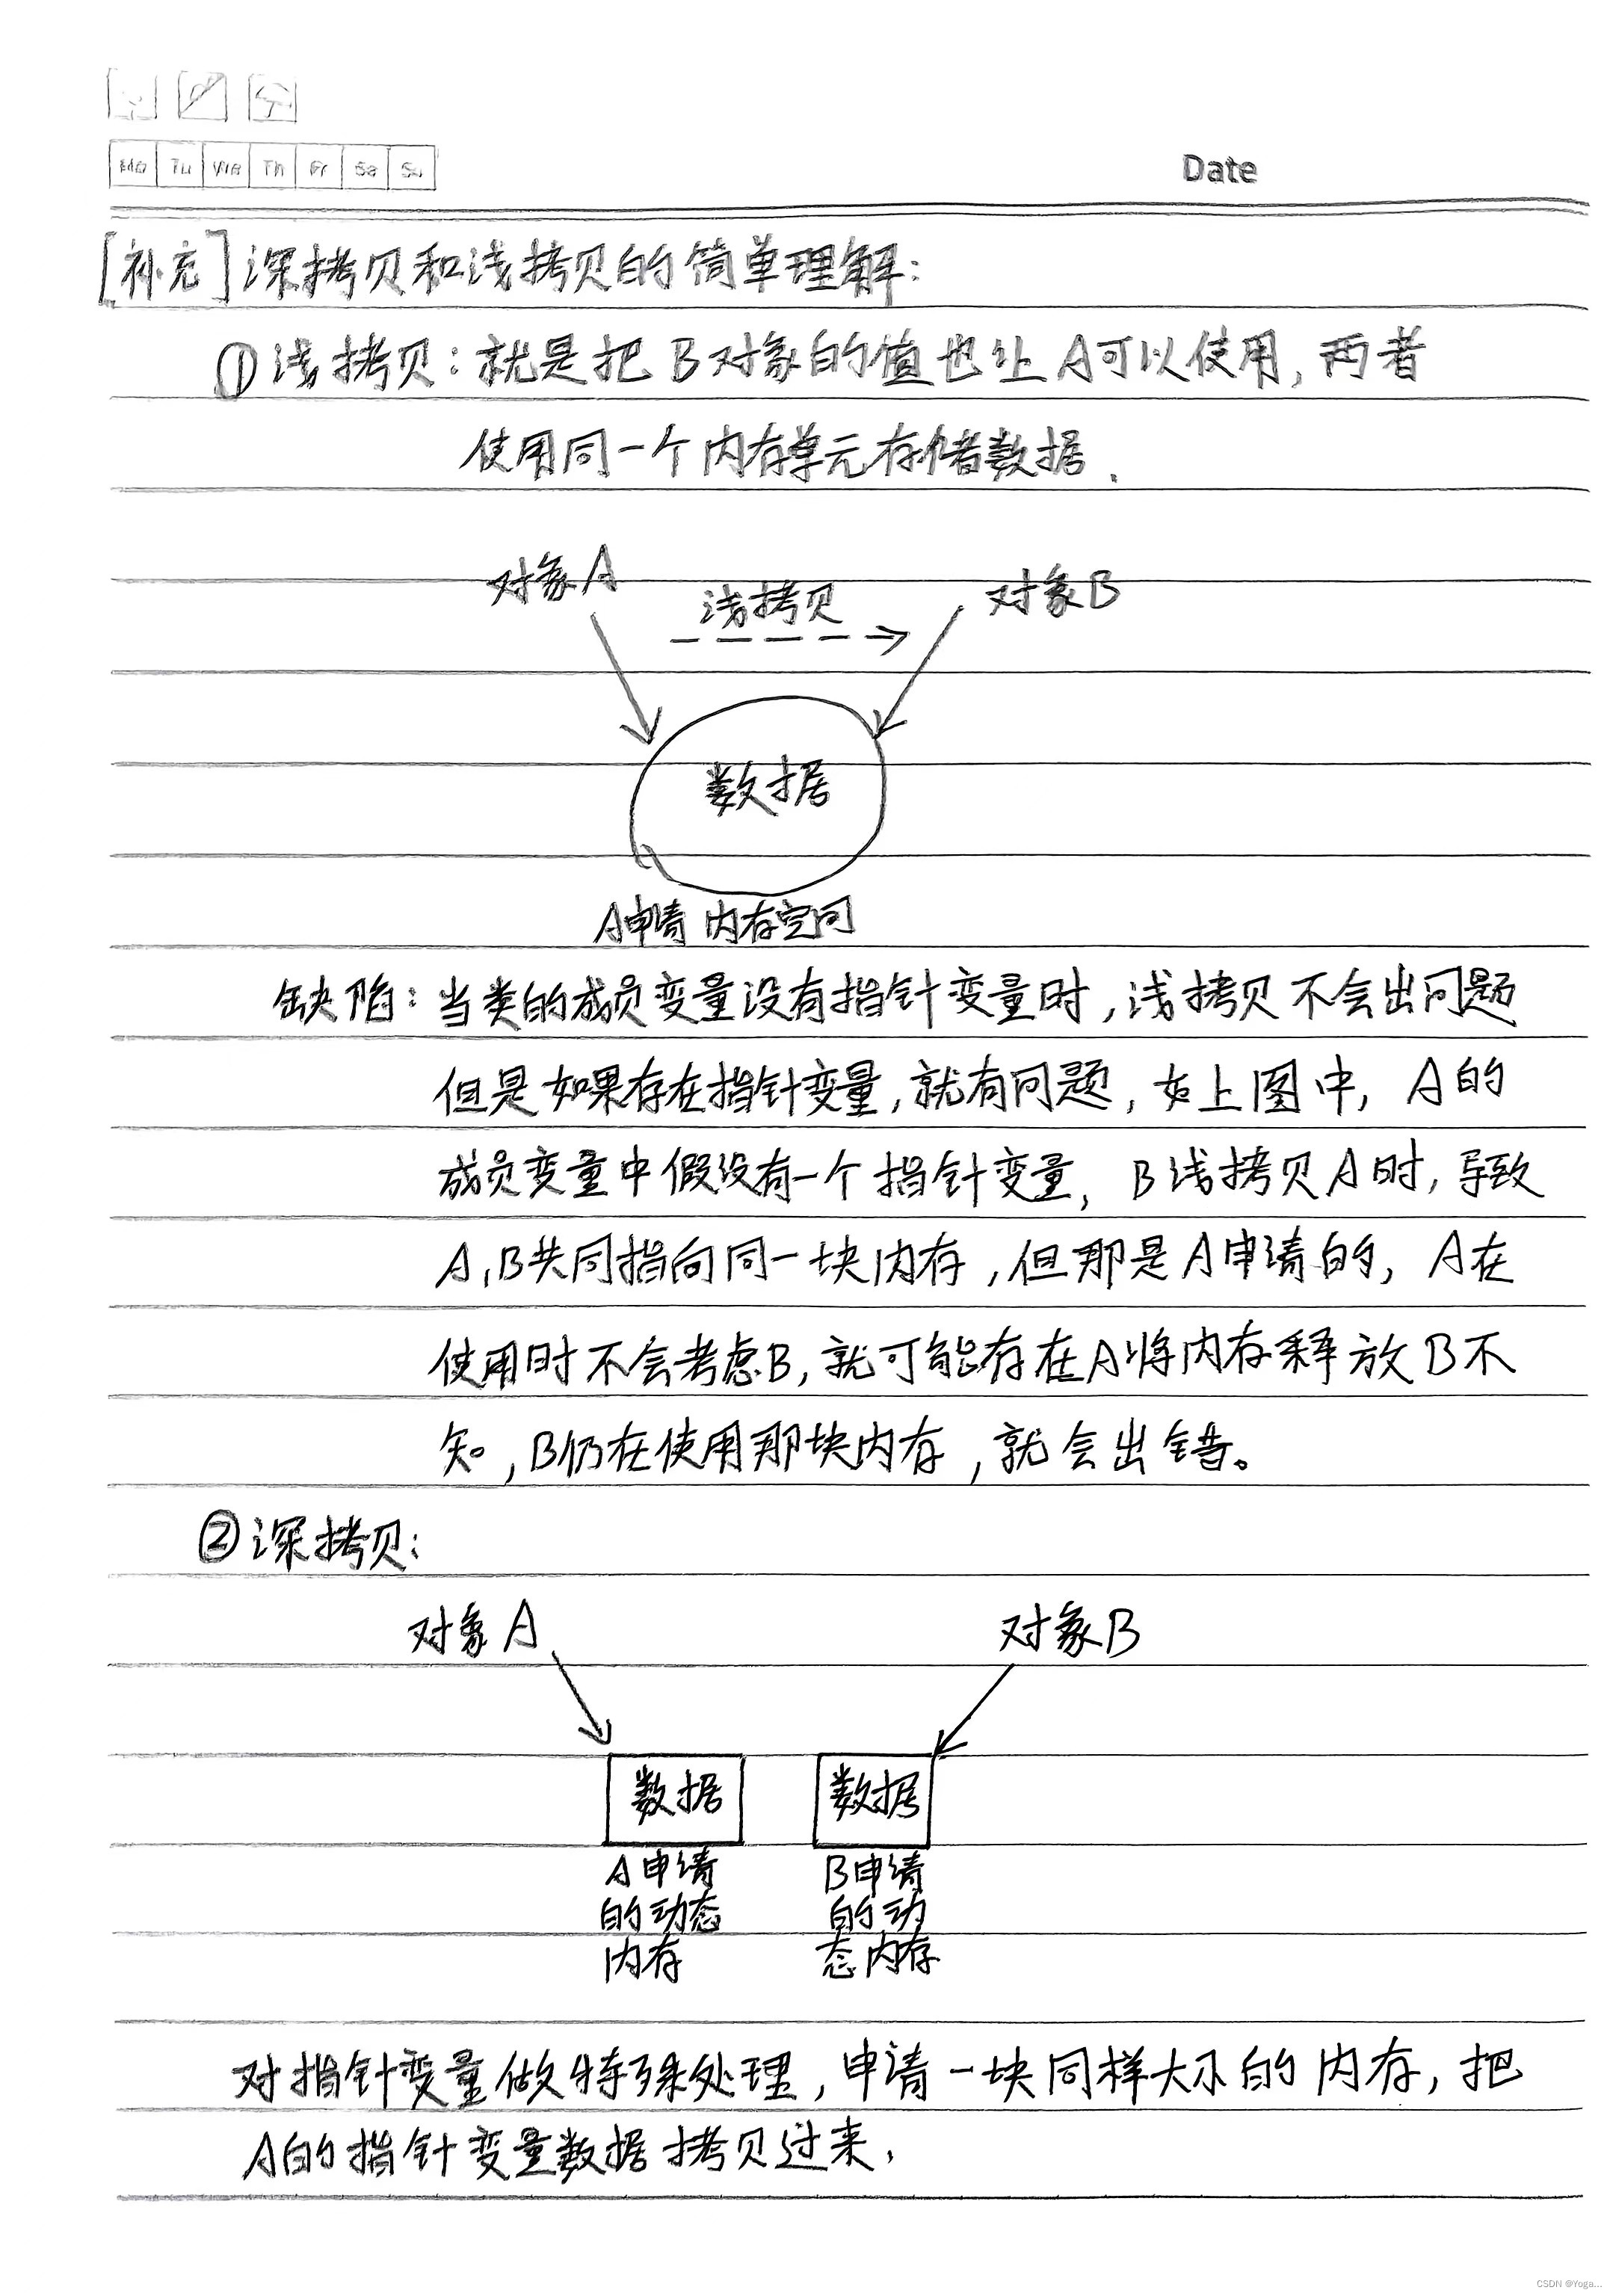 Mo Tu We Th Fr Sa Su
Date
[补充]深拷贝和浅拷贝的简单理解:
①浅拷贝:就是把B对象的值也让A可以使用,两者
使用同一个内存单元存储数据.
对象A 浅拷贝 对象B
数据
A申请 内存空间
缺陷:当类的成员变量没有指针变量时,浅拷贝不会出问题
但是如果存在指针变量,就有问题,如上图中,A的
成员变量中假设有一个指针变量,B浅拷贝A时,导致
A,B共同指向同一块内存,但那是A申请的,A在
使用时不会考虑B,就可能存在A将内存释放B不
知,B仍在使用那块内存,就会出错。
②深拷贝:
对象A 对象B
数据 数据
A申请 B申请
的动态 的动
内存 态内存
对指针变量做特殊处理,申请一块同样大小的内存,把
A的指针变量数据拷贝过来.
CSDN @Yoga...